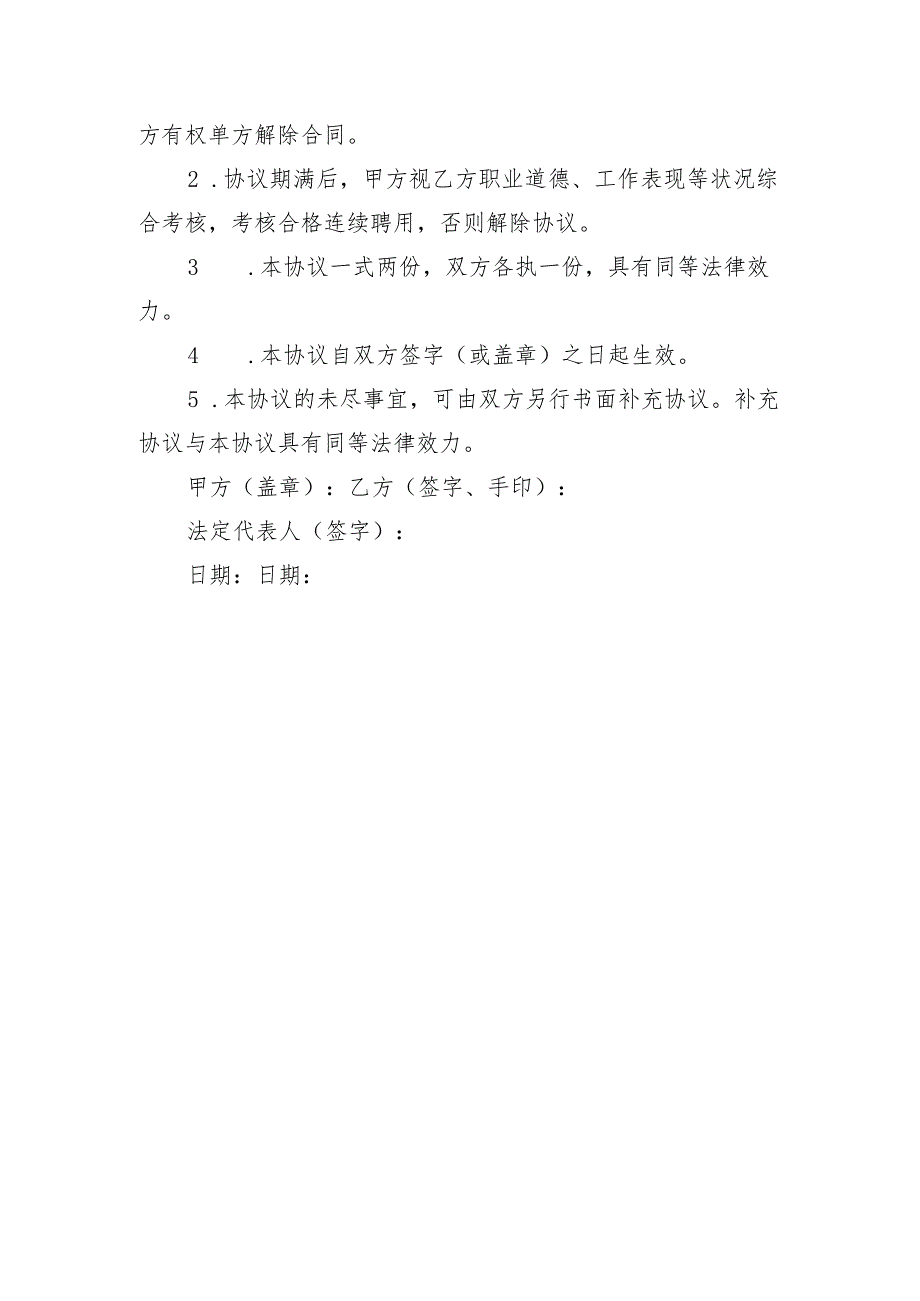 方有权单方解除合同。
2 .协议期满后，甲方视乙方职业道德、工作表现等状况综
合考核，考核合格连续聘用，否则解除协议。
3 .本协议一式两份，双方各执一份，具有同等法律效
力。
4 .本协议自双方签字（或盖章）之日起生效。
5 .本协议的未尽事宜，可由双方另行书面补充协议。补充
协议与本协议具有同等法律效力。
甲方（盖章）：乙方（签字、手印）：
法定代表人（签字）：
日期：日期：